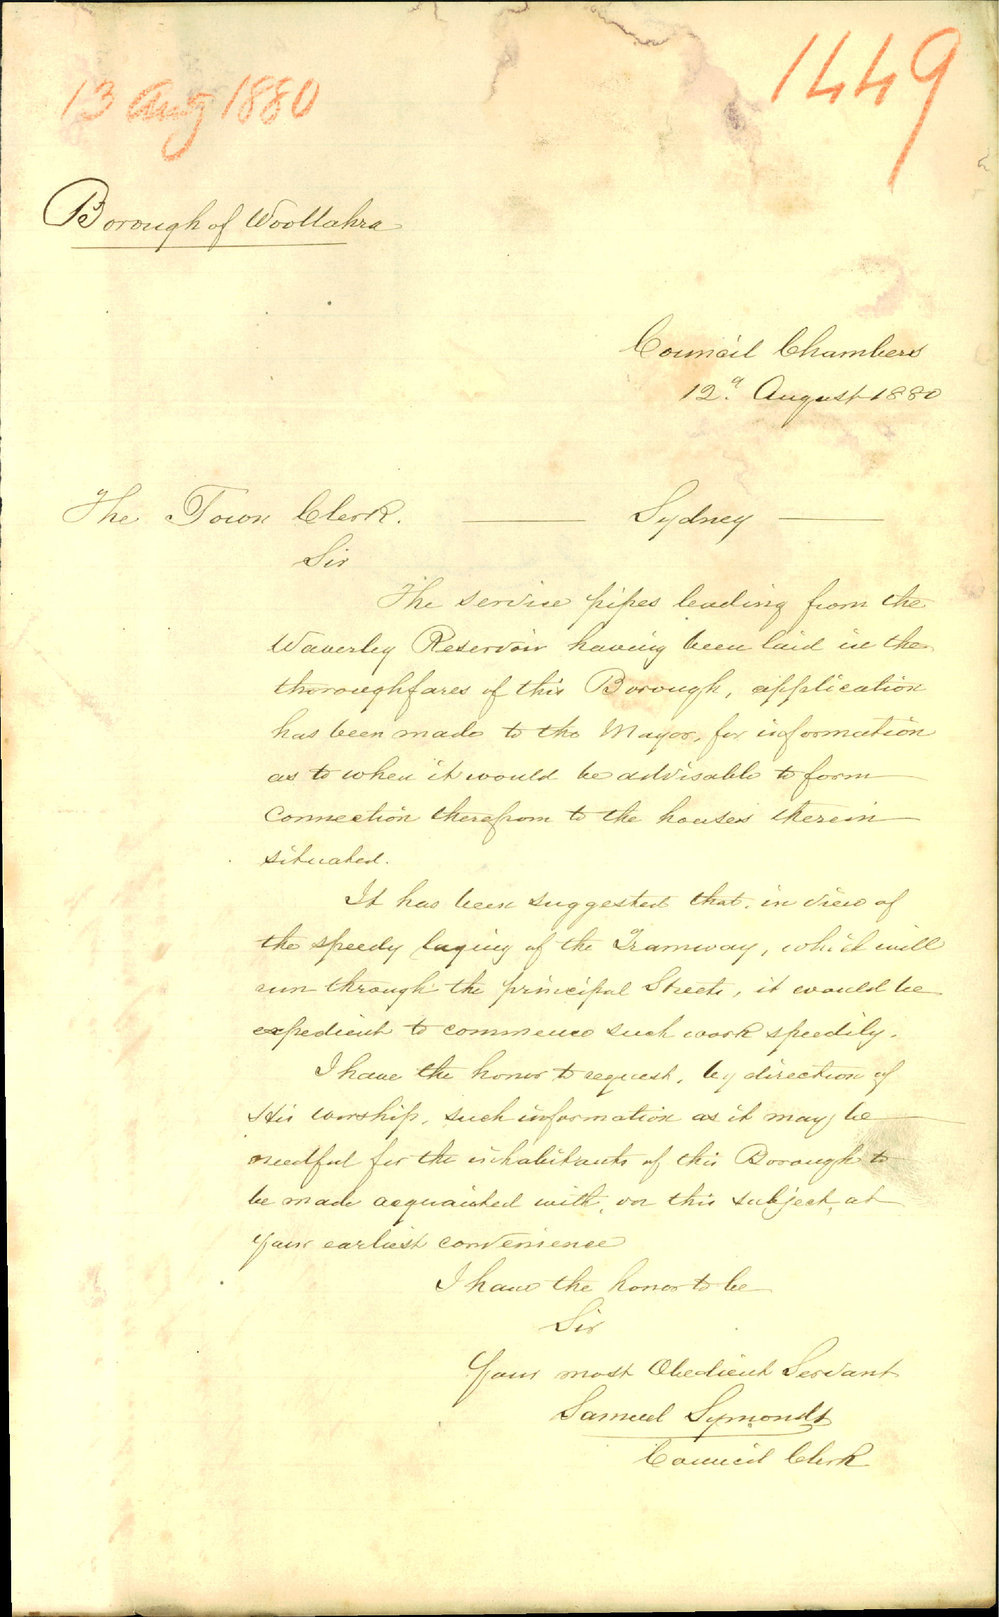 13 Aug 1880
1449
Borough of Woollahra
Council Chambers
12th August 1880
The Town Clerk. Sydney
Sir
The service pipes leading from the
Waverley Reservoir having been laid in the
thoroughfares of this Borough, application
has been made to the Mayor, for information
as to when it would be advisable to form
connection therefrom to the houses therein
situated.
It has been suggested that, in view of
the speedy laying of the Tramway, which will
run through the principal Streets, it would be
expedient to commence such work speedily.
I have the honor to request, by direction of
His worship, such information as it may be
needful for the inhabitants of this Borough to
be made acquainted with, on this subject, at
your earliest convenience
I have the honor to be
Sir
Your most Obedient Servant
Samuel Symonds
Council Clerk